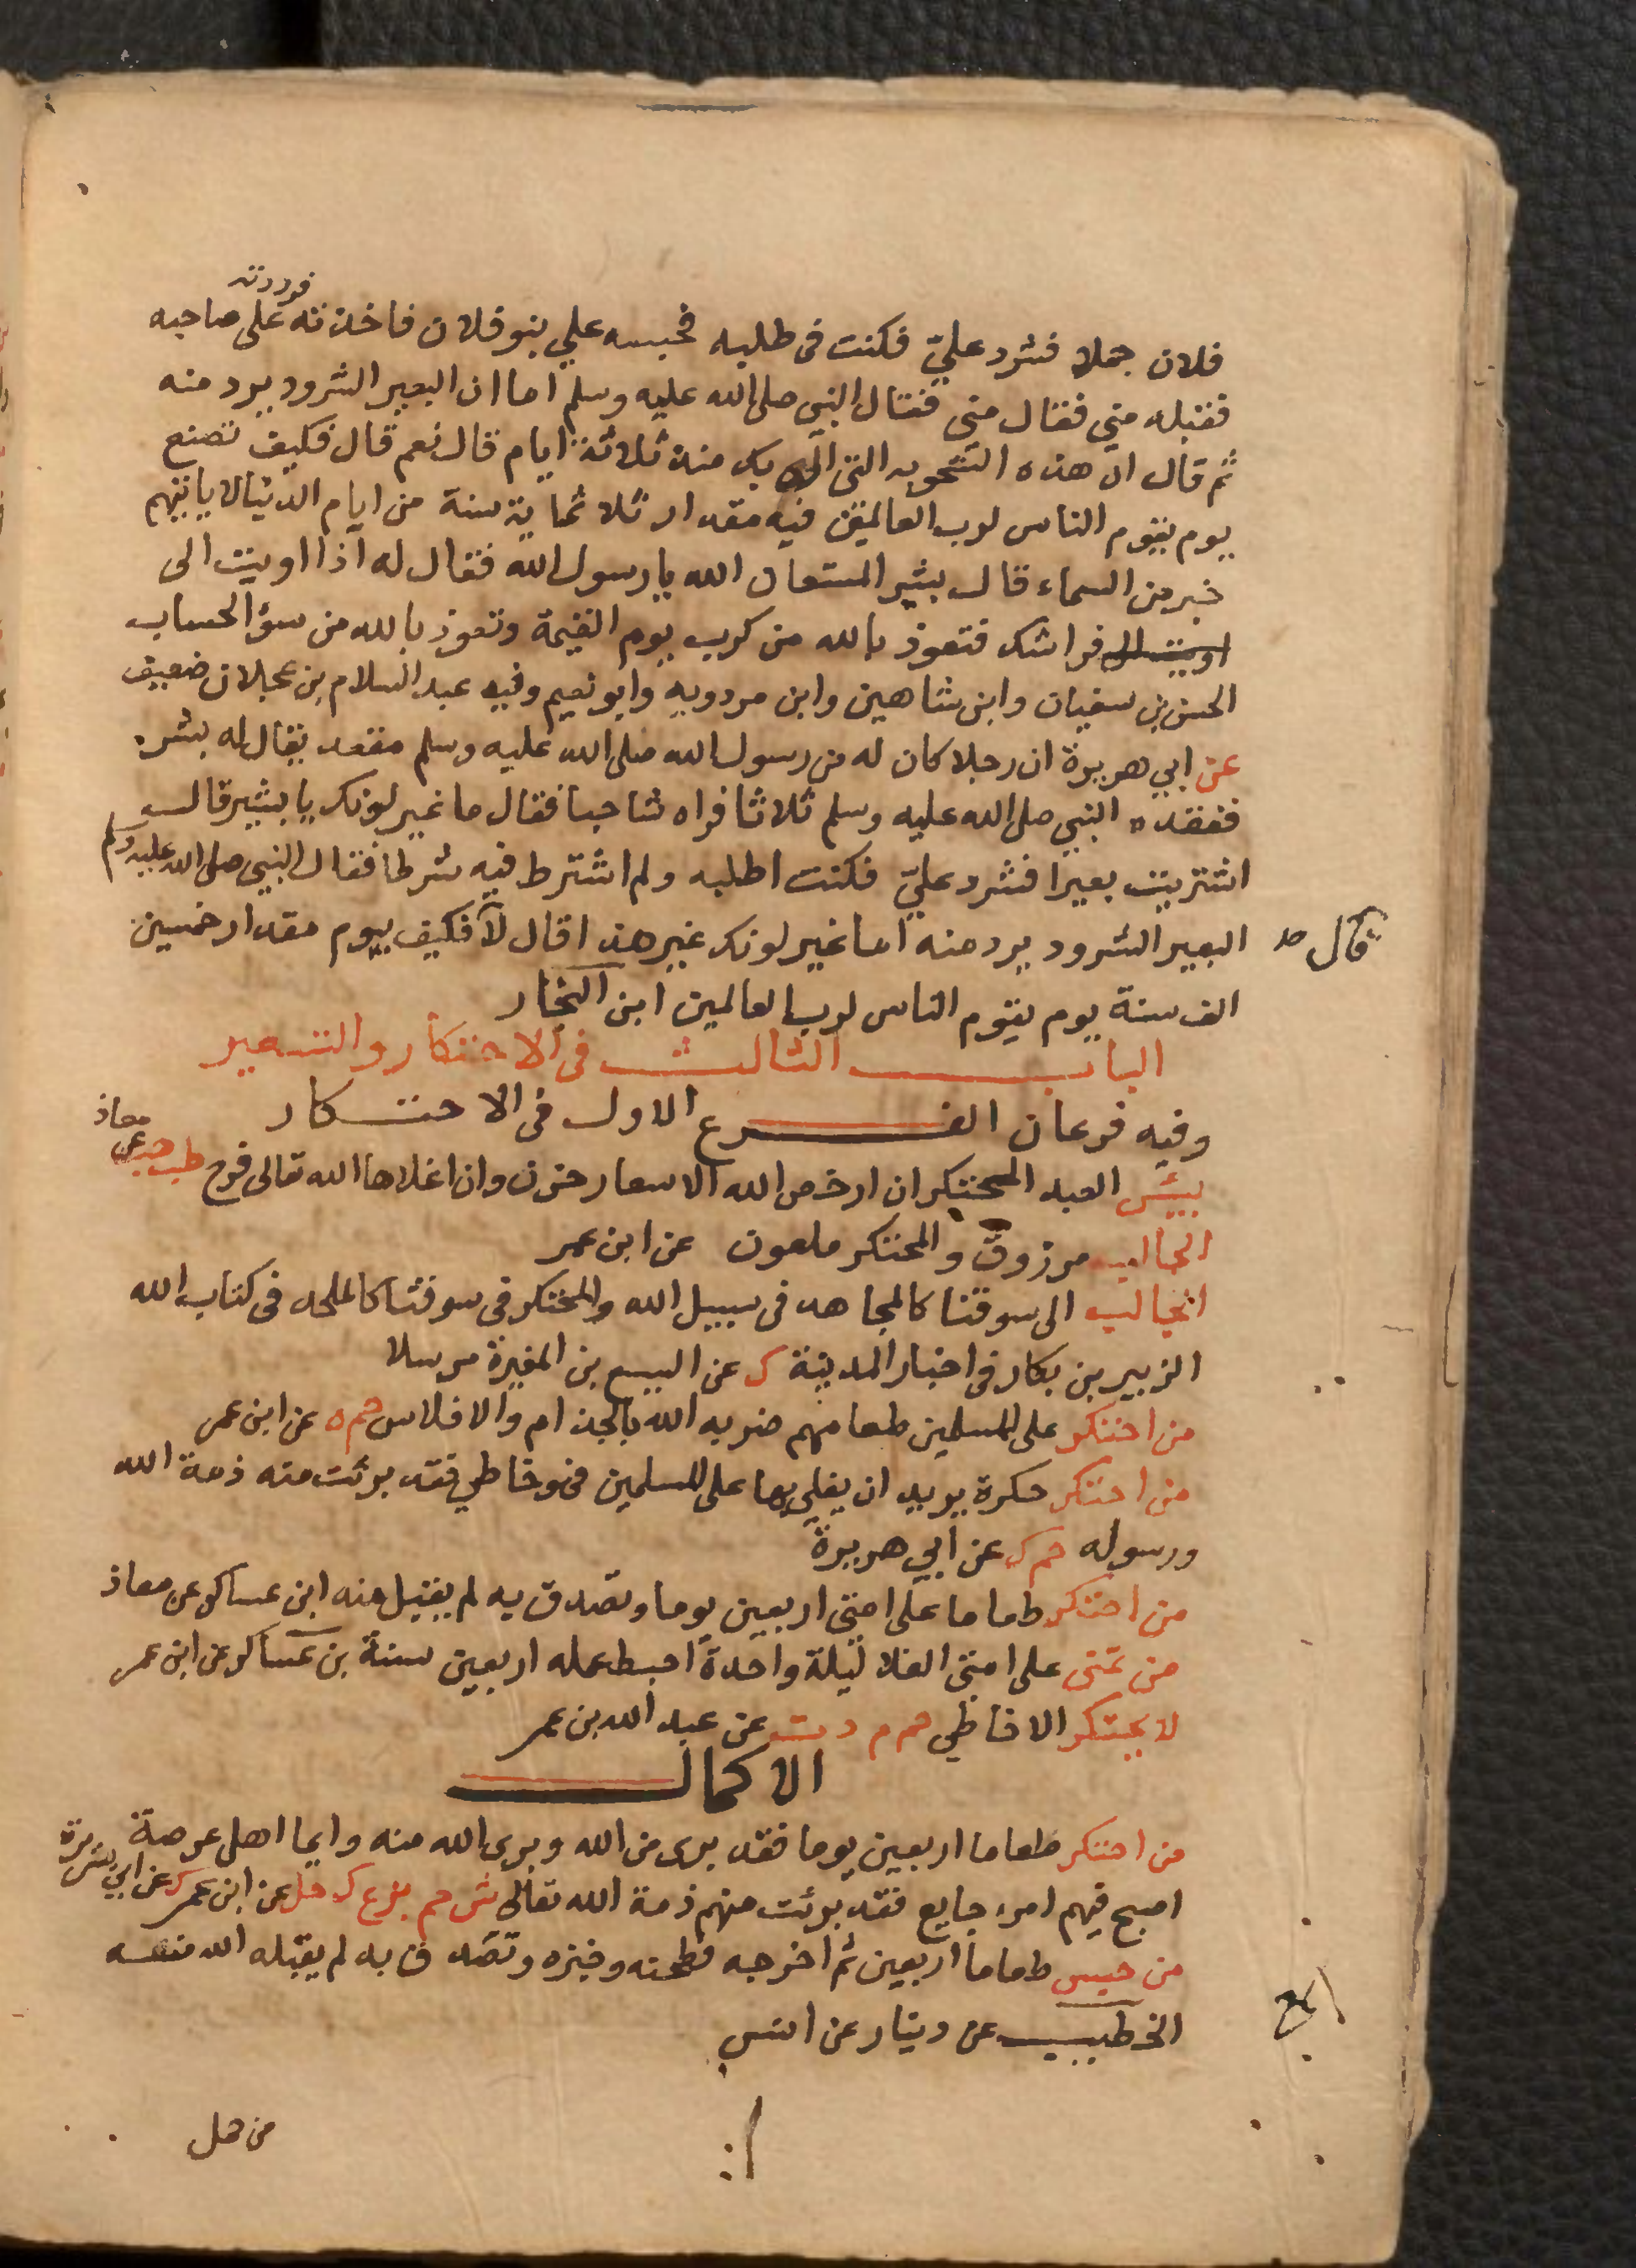 فوردته
فلان جملا فشرد عليّ فكنت فى طلبه فحبسه علي بنو فلان فاخذته على صاحبه
فقبله مني فقال مني فقال النبى صلى الله عليه وسلم اما ان البعير الشرود يرد منه
ثم قال ان هذه الشحوبه التى ارى بك منذ ثلاثة ايام قال نعم قال فكيف تصنع
يوم يقوم الناس لرب العالمين فيه مقدار ثلاثماية سنة من ايام الدنيا لا ياتيهم
خبر من السماء قال بشير المستعان الله يا رسول الله فقال له اذا اويت الى
اويت الى فراشك فتعوذ بالله من كرب يوم القيمة وتعوذ بالله من سؤ الحساب
الحسن بن سفيان وابن شاهين وابن مردويه وابو نعيم وفيه عبد السلام بن عجلان ضعيف
عن ابي هريرة ان رجلا كان له من رسول الله صلى الله عليه وسلم مقعد يقال له بشير
ففقده النبي صلى الله عليه وسلم ثلاثا فراه شاحبا فقال ما غير لونك يا بشير قال
اشتريت بعيرا فشرد عليّ فكنت اطلبه ولم اشترط فيه شرطا فقال النبي صلى الله عليه وسلم
البعير الشرود يرد منه اما غير لونك غير هذا قال لا فكيف بيوم مقدار خمسين
قال صد
الف سنة يوم يقوم الناس لرب العالمين ابن النجار
الباب الثالث فى الاحتكار والتسعير
وفيه فرعان الفرع الاول فى الاحتكار
بيئس العبد المحتكر ان ارخص الله الاسعار حزن وان اغلاها الله تعالى فرح طب هب عن معاذ
الجالب مرزوق والمحتكر ملعون عن ابن عمر
الجالب الى سوقنا كالمجاهد فى سبيل الله والمحتكر فى سوقنا كالملحد فى كتاب الله
الزبير بن بكار فى اخبار المدينة ك عن اليسع بن المغيرة مرسلا
من احتكر على المسلمين طعامهم ضربه الله بالجذام والافلاس حم ه عن ابن عمر
من احتكر حكرة يريد ان يغلي بها على المسلمين فهو خاطي فقد برئت منه ذمة الله
ورسوله حم ك عن ابي هريرة
من احتكر طعاما على امتى اربعين يوما وتصدق به لم يقبل منه ابن عساكر عن معاذ
من تمنى على امتى الغلا ليلة واحدة احبط عمله اربعين سنة بن عساكر عن ابن عمر
لا يحتكر الا خاطي حم م د ت عن عبد الله بن عمر
الاكمال
من احتكر طعاما اربعين يوما فقد برى من الله وبرى الله منه وايما اهل عرصة
اصبح فيهم امرء جايع فقد برئت منهم ذمة الله تعالى ش حم بز ع ك حل عن ابن عمر ك عن ابي هريرة
من حبس طعاما اربعين ثم اخرجه فطحنه وخبزه وتصدق به لم يقبله الله منه
الخطيب عن دينار عن انس
من حمل